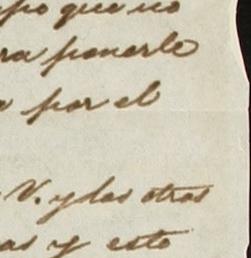 po que no
ra ponerlo
por el
V. y las otras
as y esto